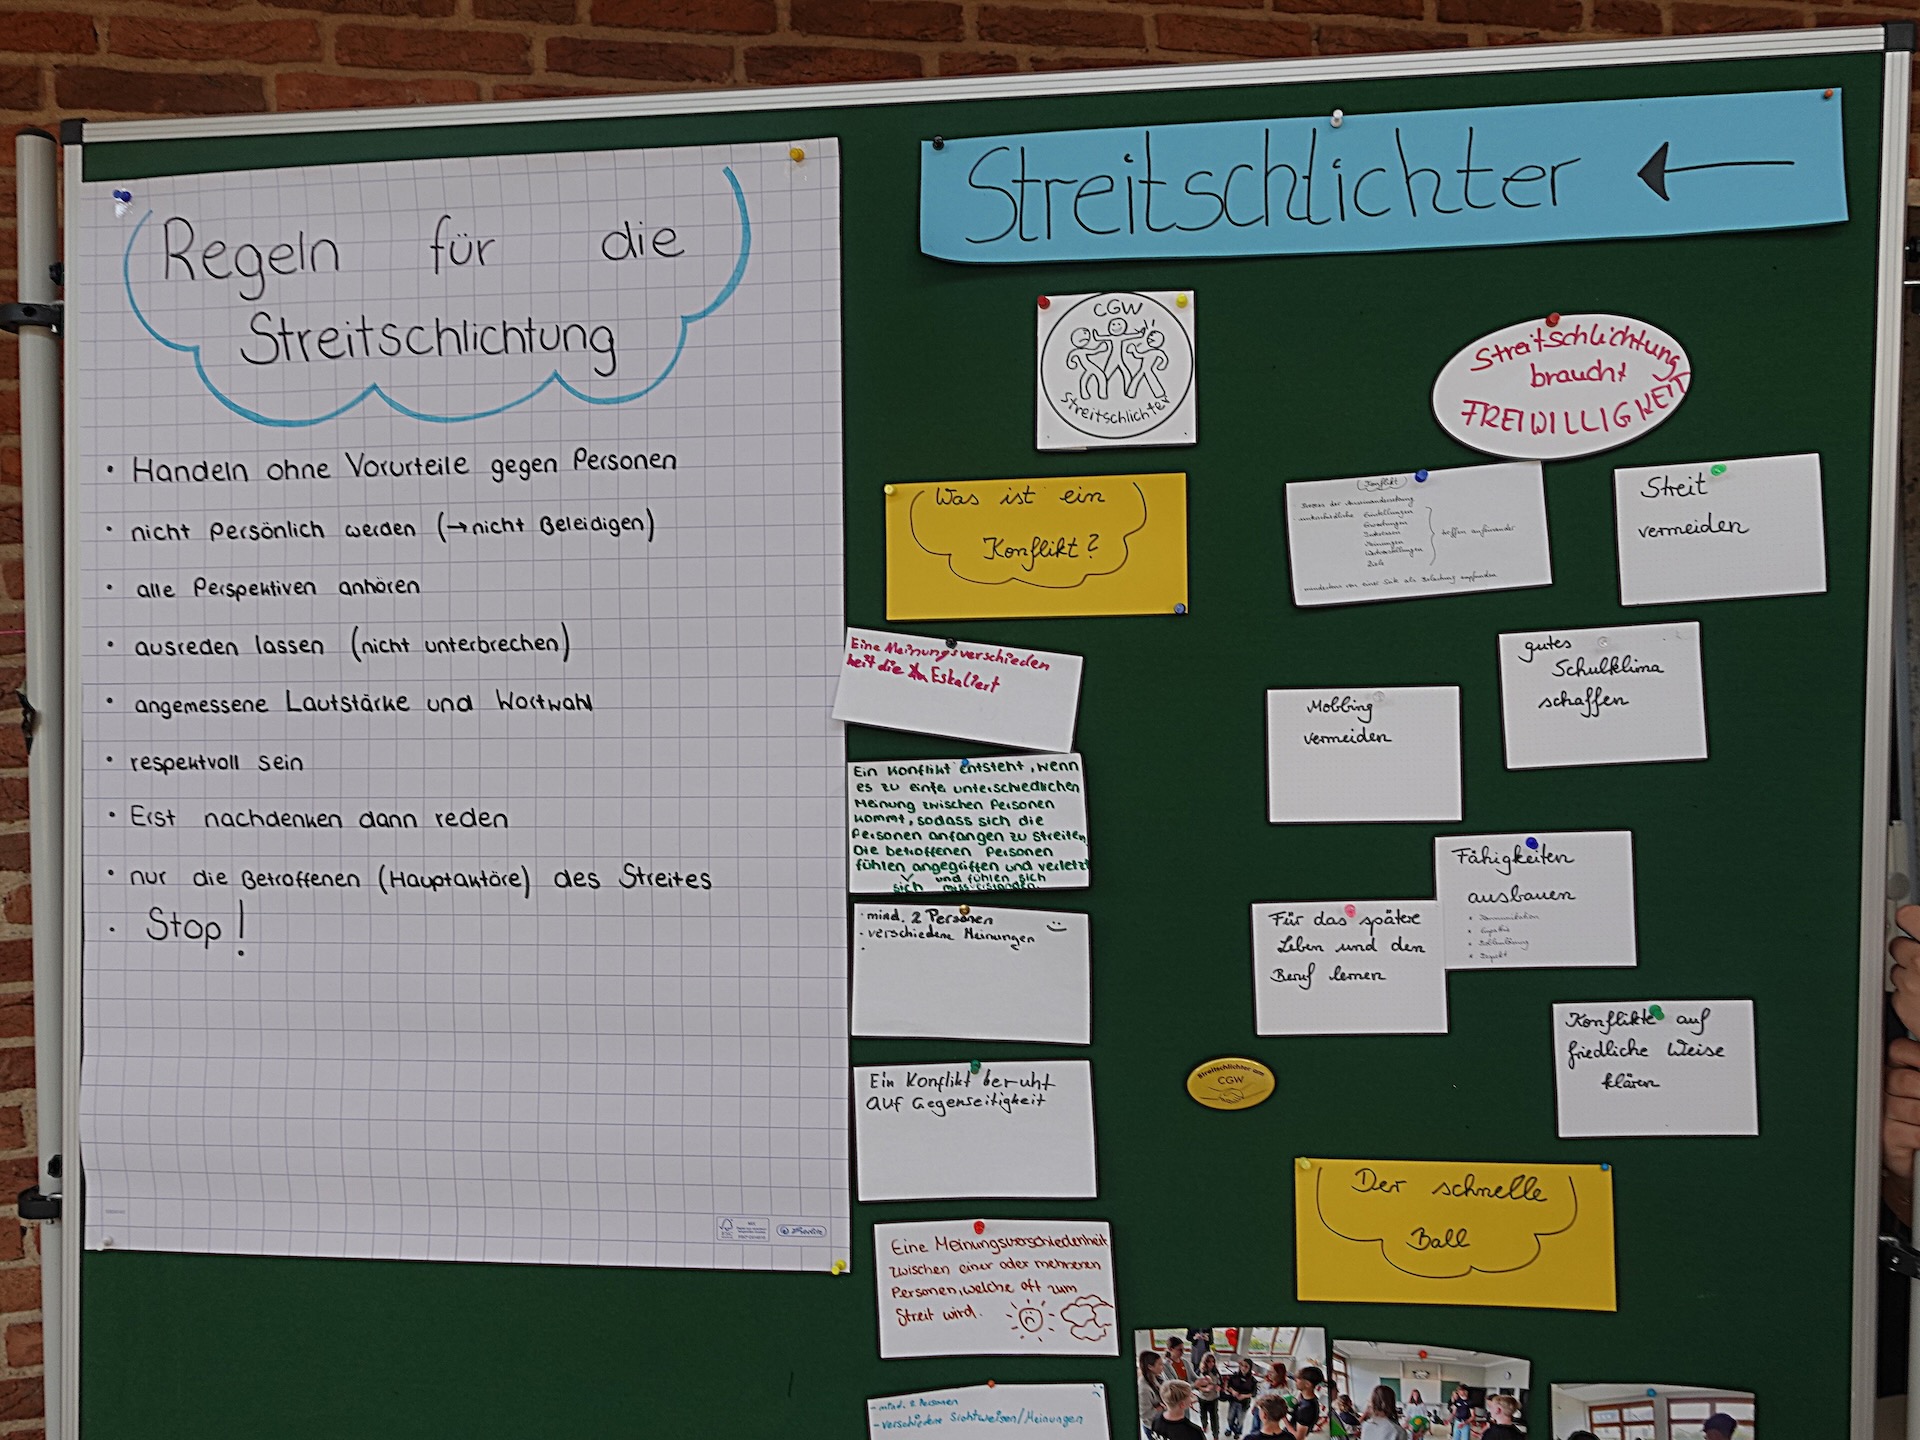 Regeln für die
Streitschlichtung
• Handeln ohne Vorurteile gegen Personen
• nicht persönlich werden (→nicht Beleidigen)
• alle Perspektiven anhören
• ausreden lassen (nicht unterbrechen)
• angemessene Lautstärke und Wortwahl
• respektvoll sein
• Erst nachdenken dann reden
• nur die Betroffenen (Hauptaktöre) des Streites
• Stop!
Streitschlichter ←
CGW
Streitschlichter
Streitschlichtung
braucht
FREIWILLIGKEIT
Was ist ein
Konflikt?
Konflikt
unterschiedliche Einstellungen
Erwartungen
Interessen
Meinungen
Wertvorstellungen
Ziele
treffen aufeinander
mindestens von einer Seite als Belastung empfunden
Streit
vermeiden
Eine Meinungsverschieden
heit die Eskaliert
gutes
Schulklima
schaffen
Mobbing
vermeiden
Ein Konflikt entsteht, wenn
es zu eine unterschiedlichen
Meinung zwischen Personen
kommt, sodass sich die
Personen anfangen zu streiten
Die betroffenen Personen
fühlen angegriffen und verletzt
sich und fühlen sich
missverstanden.
Fähigkeiten
ausbauen
• Kommunikation
• Empathie
• Respekt
Für das spätere
Leben und den
Beruf lernen
· mind. 2 Personen
· verschiedene Meinungen
·
Konflikte auf
friedliche Weise
klären
Streitschlichter am
CGW
Ein Konflikt beruht
auf Gegenseitigkeit
Der schnelle
Ball
Eine Meinungsverschiedenheit
zwischen einer oder mehreren
Personen, welche oft zum
Streit wird.
- mind. 2 Personen
- verschiedene Sichtweisen/Meinungen